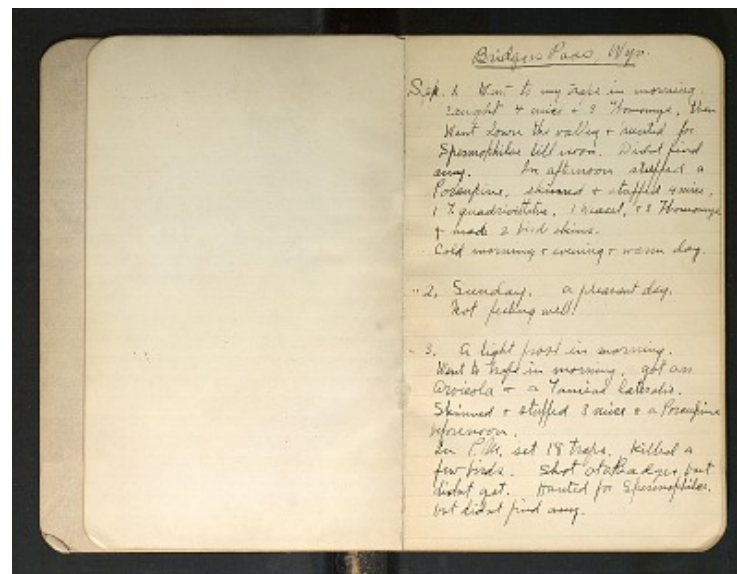 Bridgers Pass, Wyo.
Sep. 1. Went to my traps in morning.
Caught 4 mice + 3 Thomomys, then
Went down the valley + hunted for
Spermophiles till noon. Didnt find
any. In afternoon stuffed a
Porcupine, skinned + stuffed 4 mice,
1 T. quadrivittatus, 1 weasel, + 3 Thomomys
+ made 2 bird skins.
Cold morning + evening + warm day.
" 2. Sunday. a pleasant day.
Not feeling well!
" 3. A light frost in morning.
Went to traps in morning. got an
Arvicola + a Tamias lateralis.
Skinned + stuffed 3 mice + a Porcupine
forenoon.
In P.M. set 18 traps. Killed a
few birds. Shot at a Badger but
didnt get. Hunted for Spermophiles,
but didnt find any.